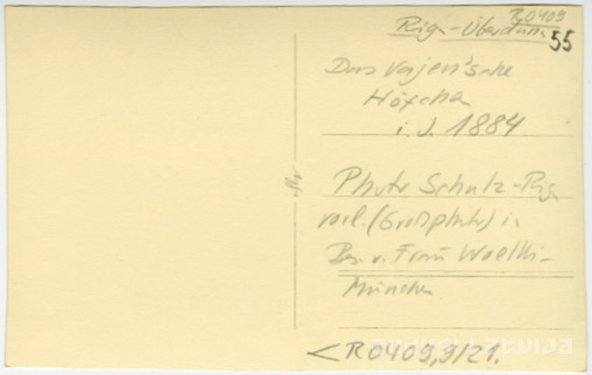 R0409
Riga-Überdüna
55
Das Vajen'sche
Höfchen
i. J. 1884
Photo Schulz-Riga
vorl. (Großphoto) in
Bes. v. Frau Woelki-
München
<R0409,9/21.